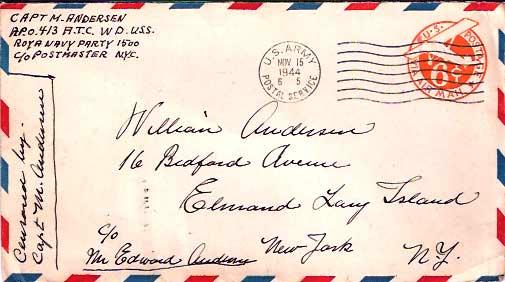 CAPT M. ANDERSEN
A.P.O. 413 A.T.C. W D. U.S.S.
ROYA NAVY PARTY 1500
C/O POSTMASTER NYC.
U.S. ARMY
NOV 15
1944
POSTAL SERVICE
U.S. POSTAGE
6¢
VIA AIR MAIL
Censored by.
Capt M. Andersen
William Andersen
16 Bedford Avenue
Elmond Long Island
c/o
Mr Edward Andersen
New York
N.Y.